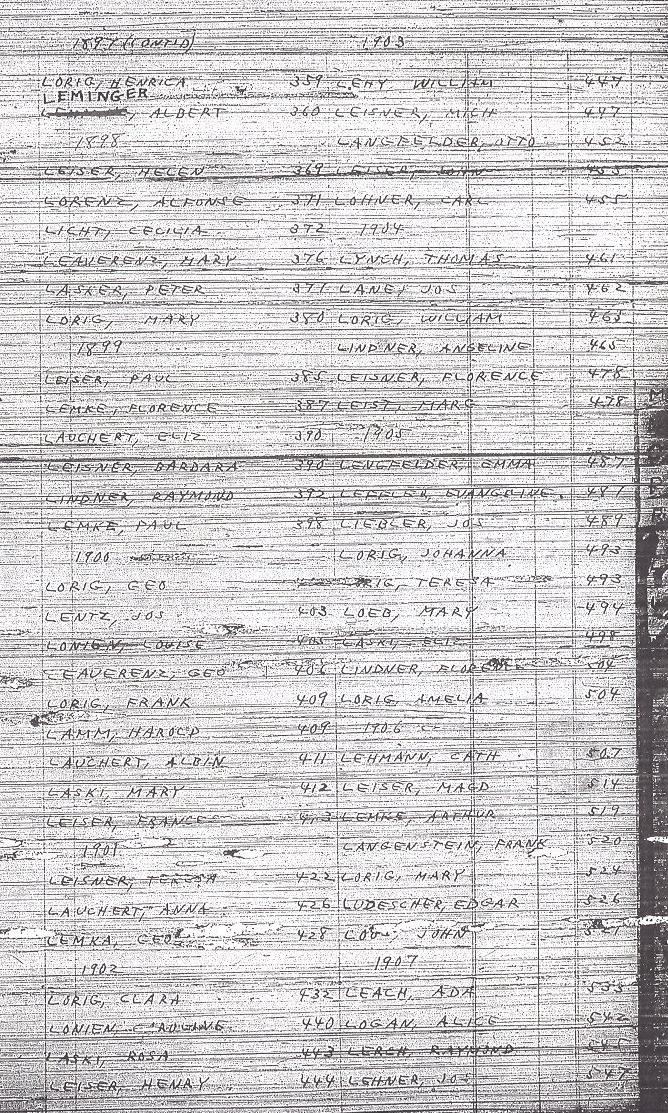 1897 (CONT'D)
LORIG, HENRICA 359
LEMINGER
, ALBERT 360
1898
LEISER, HELEN 369
LORENZ, ALFONSE 371
LICHT, CECILIA 372
LEAVERENZ, MARY 376
LASKER, PETER 377
LORIG, MARY 380
1899
LEISER, PAUL 385
LEMKE, FLORENCE 387
LAUCHERT, ELIZ 390
LEISNER, BARBARA 390
LINDNER, RAYMOND 392
LEMKE, PAUL 398
1900
LORIG, GEO
LENTZ, JOS 403
LONIEN, LOUISE 405
LEAVERENZ, GEO 406
LORIG, FRANK 409
LAMM, HAROLD 409
LAUCHERT, ALBIN 411
LASKI, MARY 412
LEISER, FRANCES 413
1901
LEISNER, TERESA 422
LAUCHERT, ANNA 426
LEMKA, GEO 428
1902
LORIG, CLARA 432
LONIEN, 440
LASKI, ROSA 443
LEISER, HENRY 444
1903
LEHY WILLIAM 447
LEISNER, MICH
LANGFELDER, OTTO 452
LEISER, JOHN 453
LOHNER, CARL 455
1904
LYNCH, THOMAS 461
LANE, JOS 462
LORIG, WILLIAM 463
LINDNER, ANGELINE 465
LEISNER, FLORENCE 478
LEIST, MARG 478
1905
LENGFELDER, EMMA 487
LEFFLER, EVANGELINE 487
LIEBLER, JOS 489
LORIG, JOHANNA 493
LORIG, TERESA 493
LOEB, MARY 494
LASKI, ELIZ 498
LINDNER, 504
LORIG, AMELIA 504
1906
LEHMANN, CATH 507
LEISER, MAGD 514
LEMKE, ARTHUR 519
LANGENSTEIN, FRANK 520
LORIG, MARY 524
LUDESCHER, EDGAR 526
JOHN
1907
LEACH, ADA 535
LOGAN, ALICE 542
LERCH, RAYMOND 545
LEHNER, JOS 547